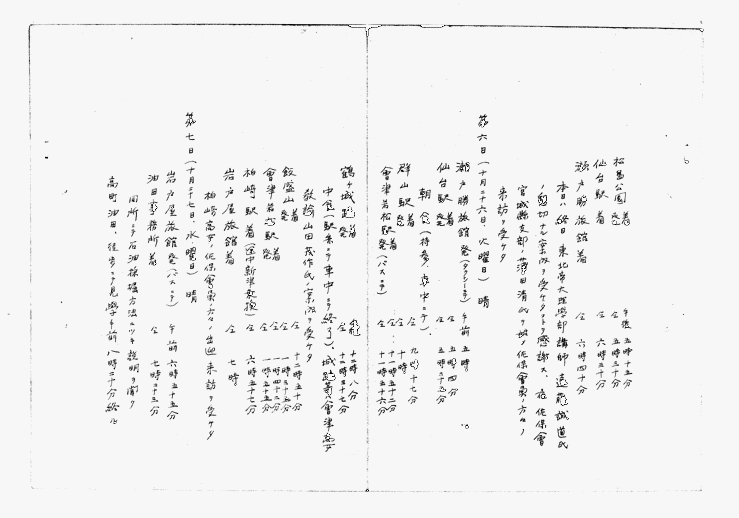 松島公園 発着 午後 五時十五分
仙台駅 着 仝 六時三十分
瀬戸勝旅館 着 仝 六時四十分
本日ハ終日東北帝大理学部講師 遠藤誠道氏
ノ懇切ナル案内ヲ受ケタルヲ感謝ス、夜佐保會
宮城縣支部ノ 田清氏ヲ始メ佐保會員ノ方々ノ
来訪ヲ受ケタ
第六日(十月二十六日、火曜日) 晴
瀬戸勝旅館 発(タクシーニテ) 午前 五時
仙台駅 発着 仝 五時四十分
朝食(持参、車中ニテ)、
群山駅 発着 仝 九時十七分 十時
會津若松駅 発着(バスニテ) 仝 十一時五十二分
鶴ヶ城趾 発着 仝
中食(駅弁ニテ車中ニテ終了)、城趾 會津高女
教諭山田茂作氏ノ案内ヲ受ケタ
飯盛山 発着 仝
會津若松駅 発着 仝
柏崎駅 着(途中新津乗換) 仝 六時五十七分
岩戸屋旅館 着 仝 七時
柏崎高女ノ佐保會員ノ方々ノ出迎来訪ヲ受ケタ
第七日(十月二十七日、水曜日) 晴
岩戸屋旅館 発(バスニテ) 午前 六時五十五分
油田事務所 着 仝 七時二十五分
同所ニテ石油採掘方法ニツキ説明ヲ聞ク
高町油田、徒歩ニテ見学午前八時二十分終ル